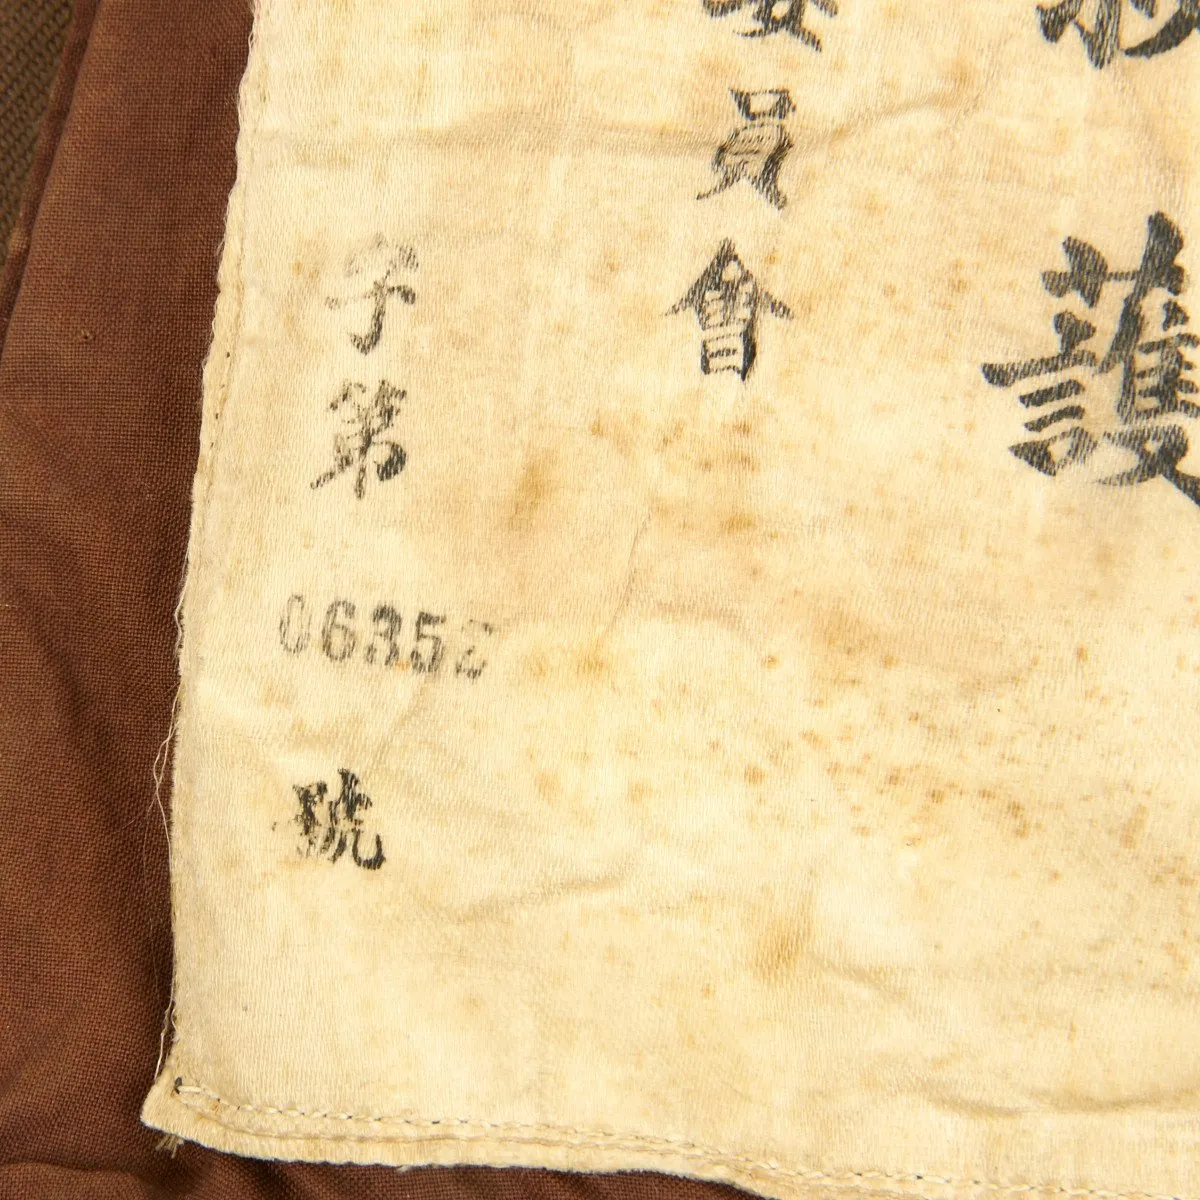 護
員會
字第
06352
號